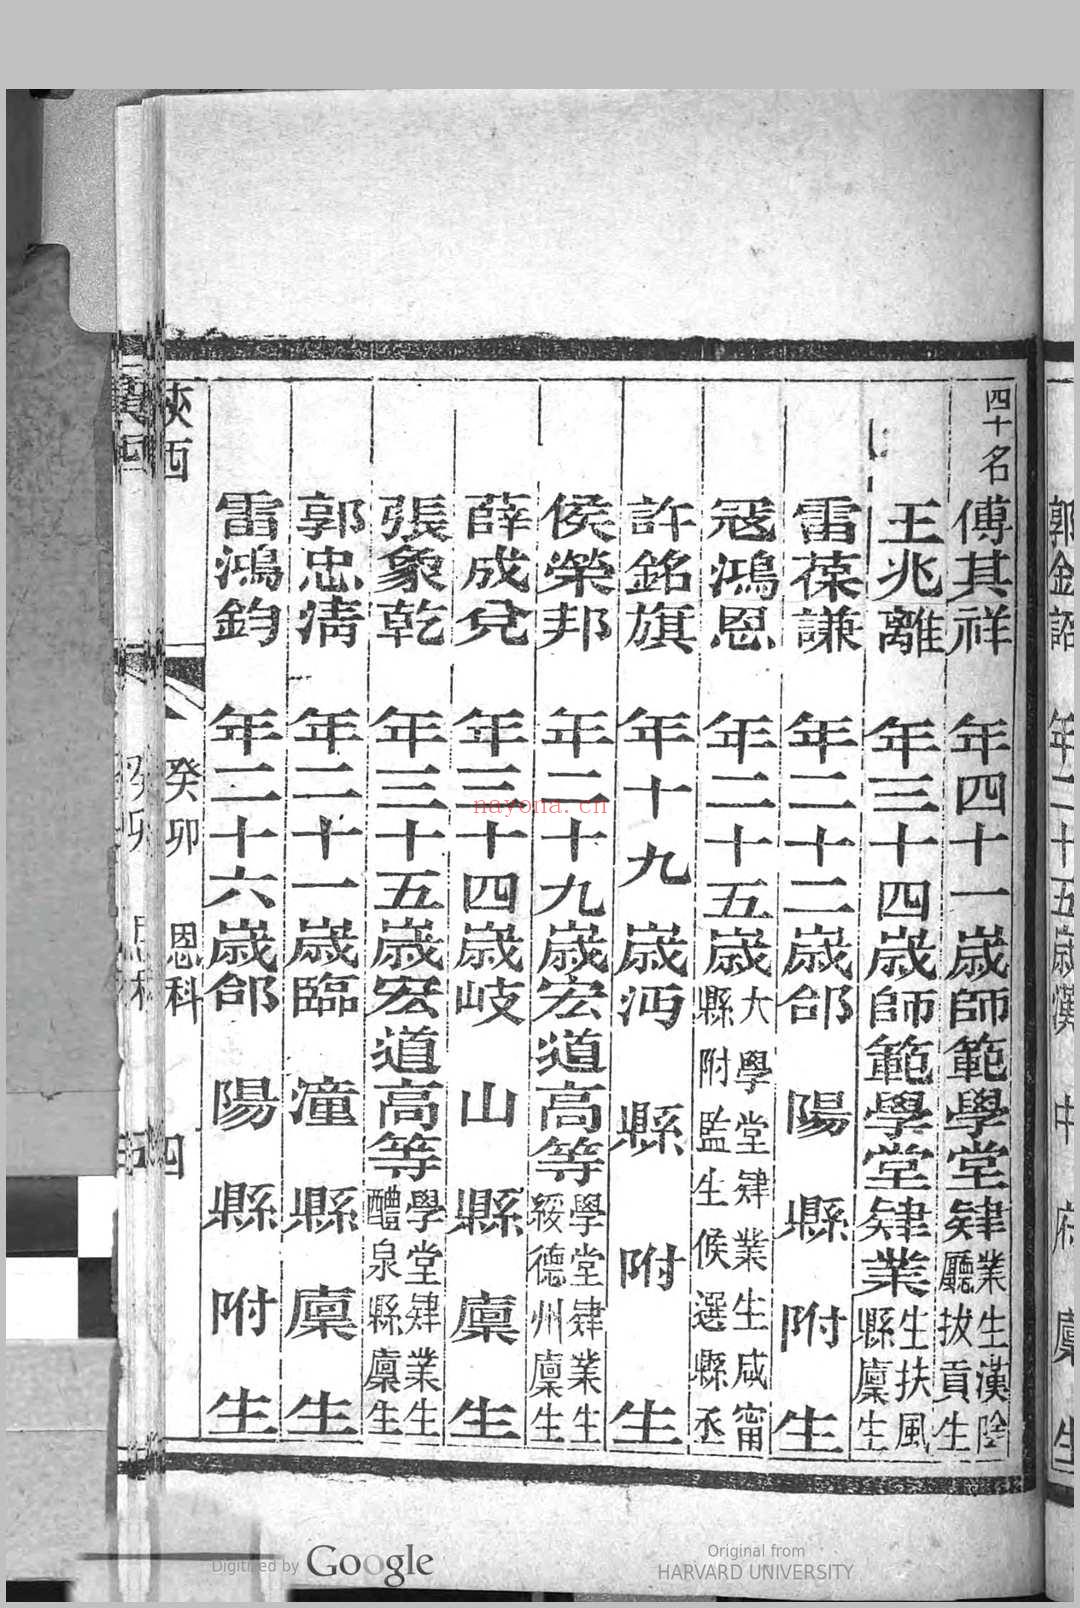 郭金詔 年二十五歲漢中府廩生
四十名 傅其祥 年四十一歲師範學堂肄業生漢陰廳拔貢生
王兆離 年三十四歲師範學堂肄業生扶風縣廩生
雷葆謙 年二十二歲郃陽縣附生
冦鴻恩 年二十五歲大學堂肄業生咸甯縣附監生候選縣丞
許銘旗 年十九歲沔縣附生
侯榮邦 年二十九歲宏道高等學堂肄業生綏德州廩生
薛成兌 年三十四歲岐山縣廩生
張象乾 年三十五歲宏道高等學堂肄業生醴泉縣廩生
郭忠清 年二十一歲臨潼縣廩生
雷鴻鈞 年二十六歲郃陽縣附生
陝西 癸卯 恩科 四
nayona.cn
Digitized by Google
Original from
HARVARD UNIVERSITY